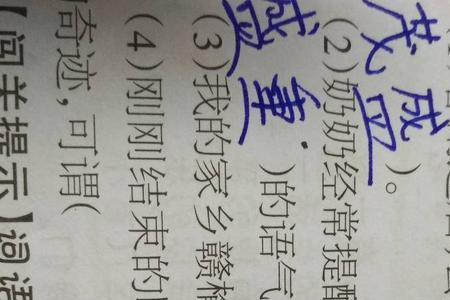 茂盛)。
(2)奶奶经常提醒
盛重)的语气
(3)我的家乡赣榆
(4)刚刚结束的
奇迹,可谓(
【闯关提示】词语